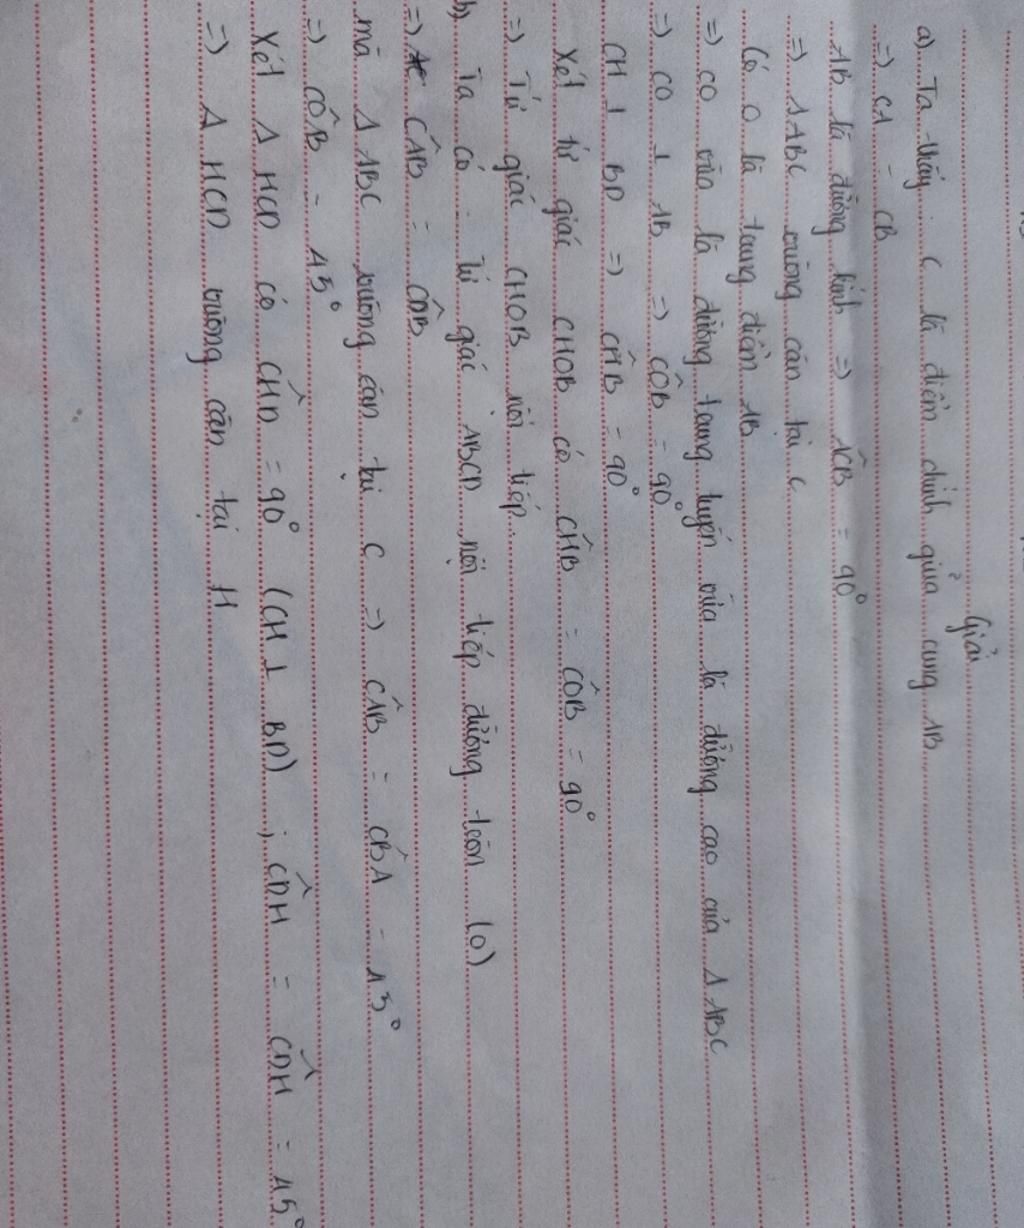 Giải
a) Ta thấy. C là điểm chính giữa cung AB
=> CA = CB
AB là đường kính => ACB̂ = 90°
=> ΔABC vuông cân tại C
Có O là trung điểm AB
=> CO vừa là đường trung tuyến vừa là đường cao của Δ ABC
=> CO ⊥ AB => CÔB = 90°
CH ⊥ BD => CĤB = 90°
Xét tứ giác CHOB có CĤB = CÔB = 90°
=> Tứ giác CHOB nội tiếp.
b) Ta có. Tứ giác ABCD nội tiếp đường tròn (O)
=> CÂB = CÔB
mà Δ ABC vuông cân tại C => CÂB = CB̂A = 45°
=> CÔB = 45°
Xét Δ HCD có CĤD = 90° (CH ⊥ BD) ; CD̂H = CD̂H = 45°
=> Δ HCD vuông cân tại H